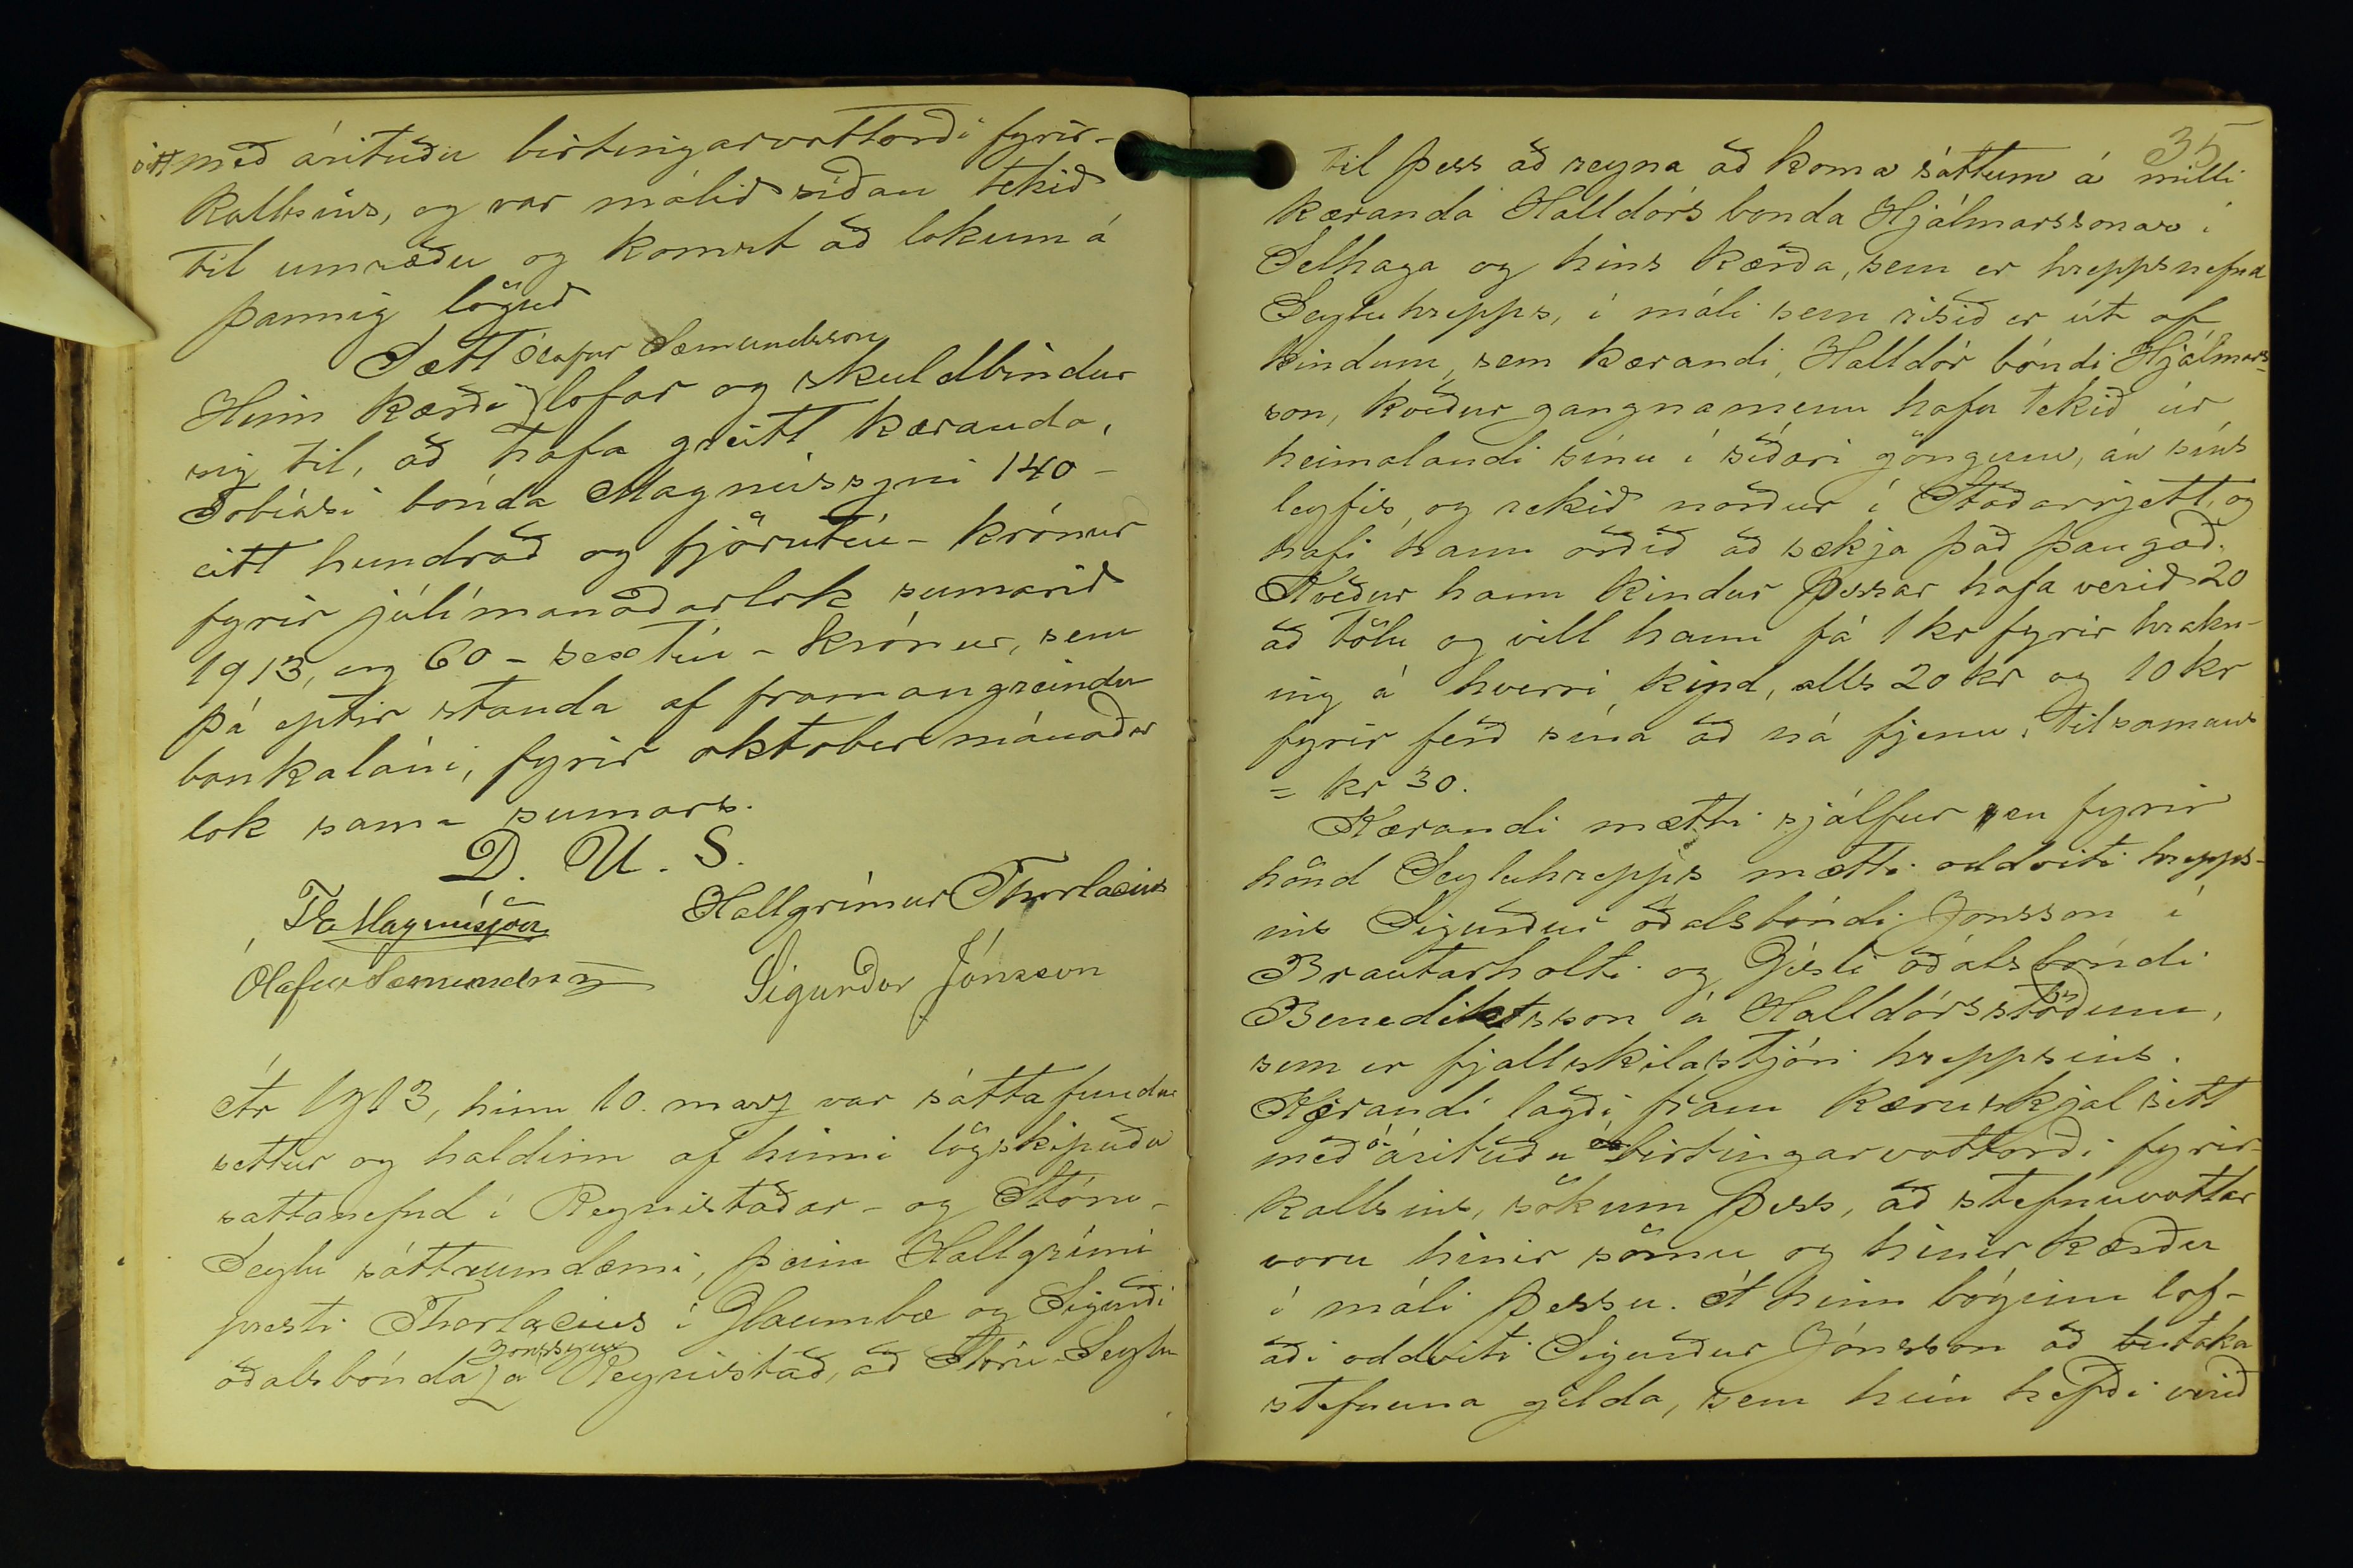 sitt með árituðu birtingarvottorði fyrir-
kallsins, og var málið síðan tekið
til umræðu og komst að lokum á
þannig löguð
Sætt
Ólafur Sæmundsson
Hinn kærði lofar og skuldbindur
sig til, að hafa greitt kæranda,
Tobíasi bónda Magnússyni 140 -
eitt hundrað og fjörutíu - krónur
fyrir júlímanaðarlok sumarið
1913, og 60 - sextíu - krónur, sem
þá eptir standa af framangreindu
bankaláni, fyrir oktober mánaðar
lok sama sumars.
D. U. S.
T Magnússon Hallgrímur Thorlacius
Ólafur Sæmundsson Sigurður Jónsson
Ár 1913, hinn 10. marz var sáttafundur
settur og haldinn af hinni lögskipuðu
sattanefnd í Reynistaðar- og Stóru-
Seylu sáttaumdæmi, þeim Hallgrími
presti Thorlacius í Glaumbæ og Sigurði
Jónssyni
óðalsbónda á Reynistað, að Stóru-Seylu
35
til þess að reyna að koma sáttum á milli
kæranda Halldórs bonda Hjálmarssonar í
Selhaga og hins kærða, sem er hreppsnefnd
Seyluhrepps, í máli sem risið er út af
kindum, sem kærandi, Halldór bóndi Hjálmars-
son, kveður gangnamenn hafa tekið úr
heimalandi sínu í síðari göngum, án síns
leyfis, og rekið norður í Staðarrjett, og
hafi hann orðið að sækja það þangað.
Kveður hann kindur þessar hafa verið 20
að tölu og vill hann fá 1 kr fyrir hrakn-
ing á hverri kind, alls 20 kr og 10 kr
fyrir ferð sína að ná fjenu, tilsamans
= kr 30.
Kærandi mætti sjálfur en fyrir
hönd Seyluhrepps mætti oddviti hrepps-
ins Sigurður óðalsbóndi Jónsson í
Brautarholti og Gísli óðalsbóndi
Benediktsson á Halldórsstöðum,
sem er fjallskilastjóri hreppsins.
Kærandi lagði fram kæruskjal sitt
með óárituðu birtingarvottorði fyrir-
kallsins, sökum þess, að stefnuvottar
voru hinir sömu og hinir kærðu
í máli þessu. Á hinn bóginn lof-
aði oddviti Sigurður Jónsson að taka
stefnuna gilda, sem hún hefði verið